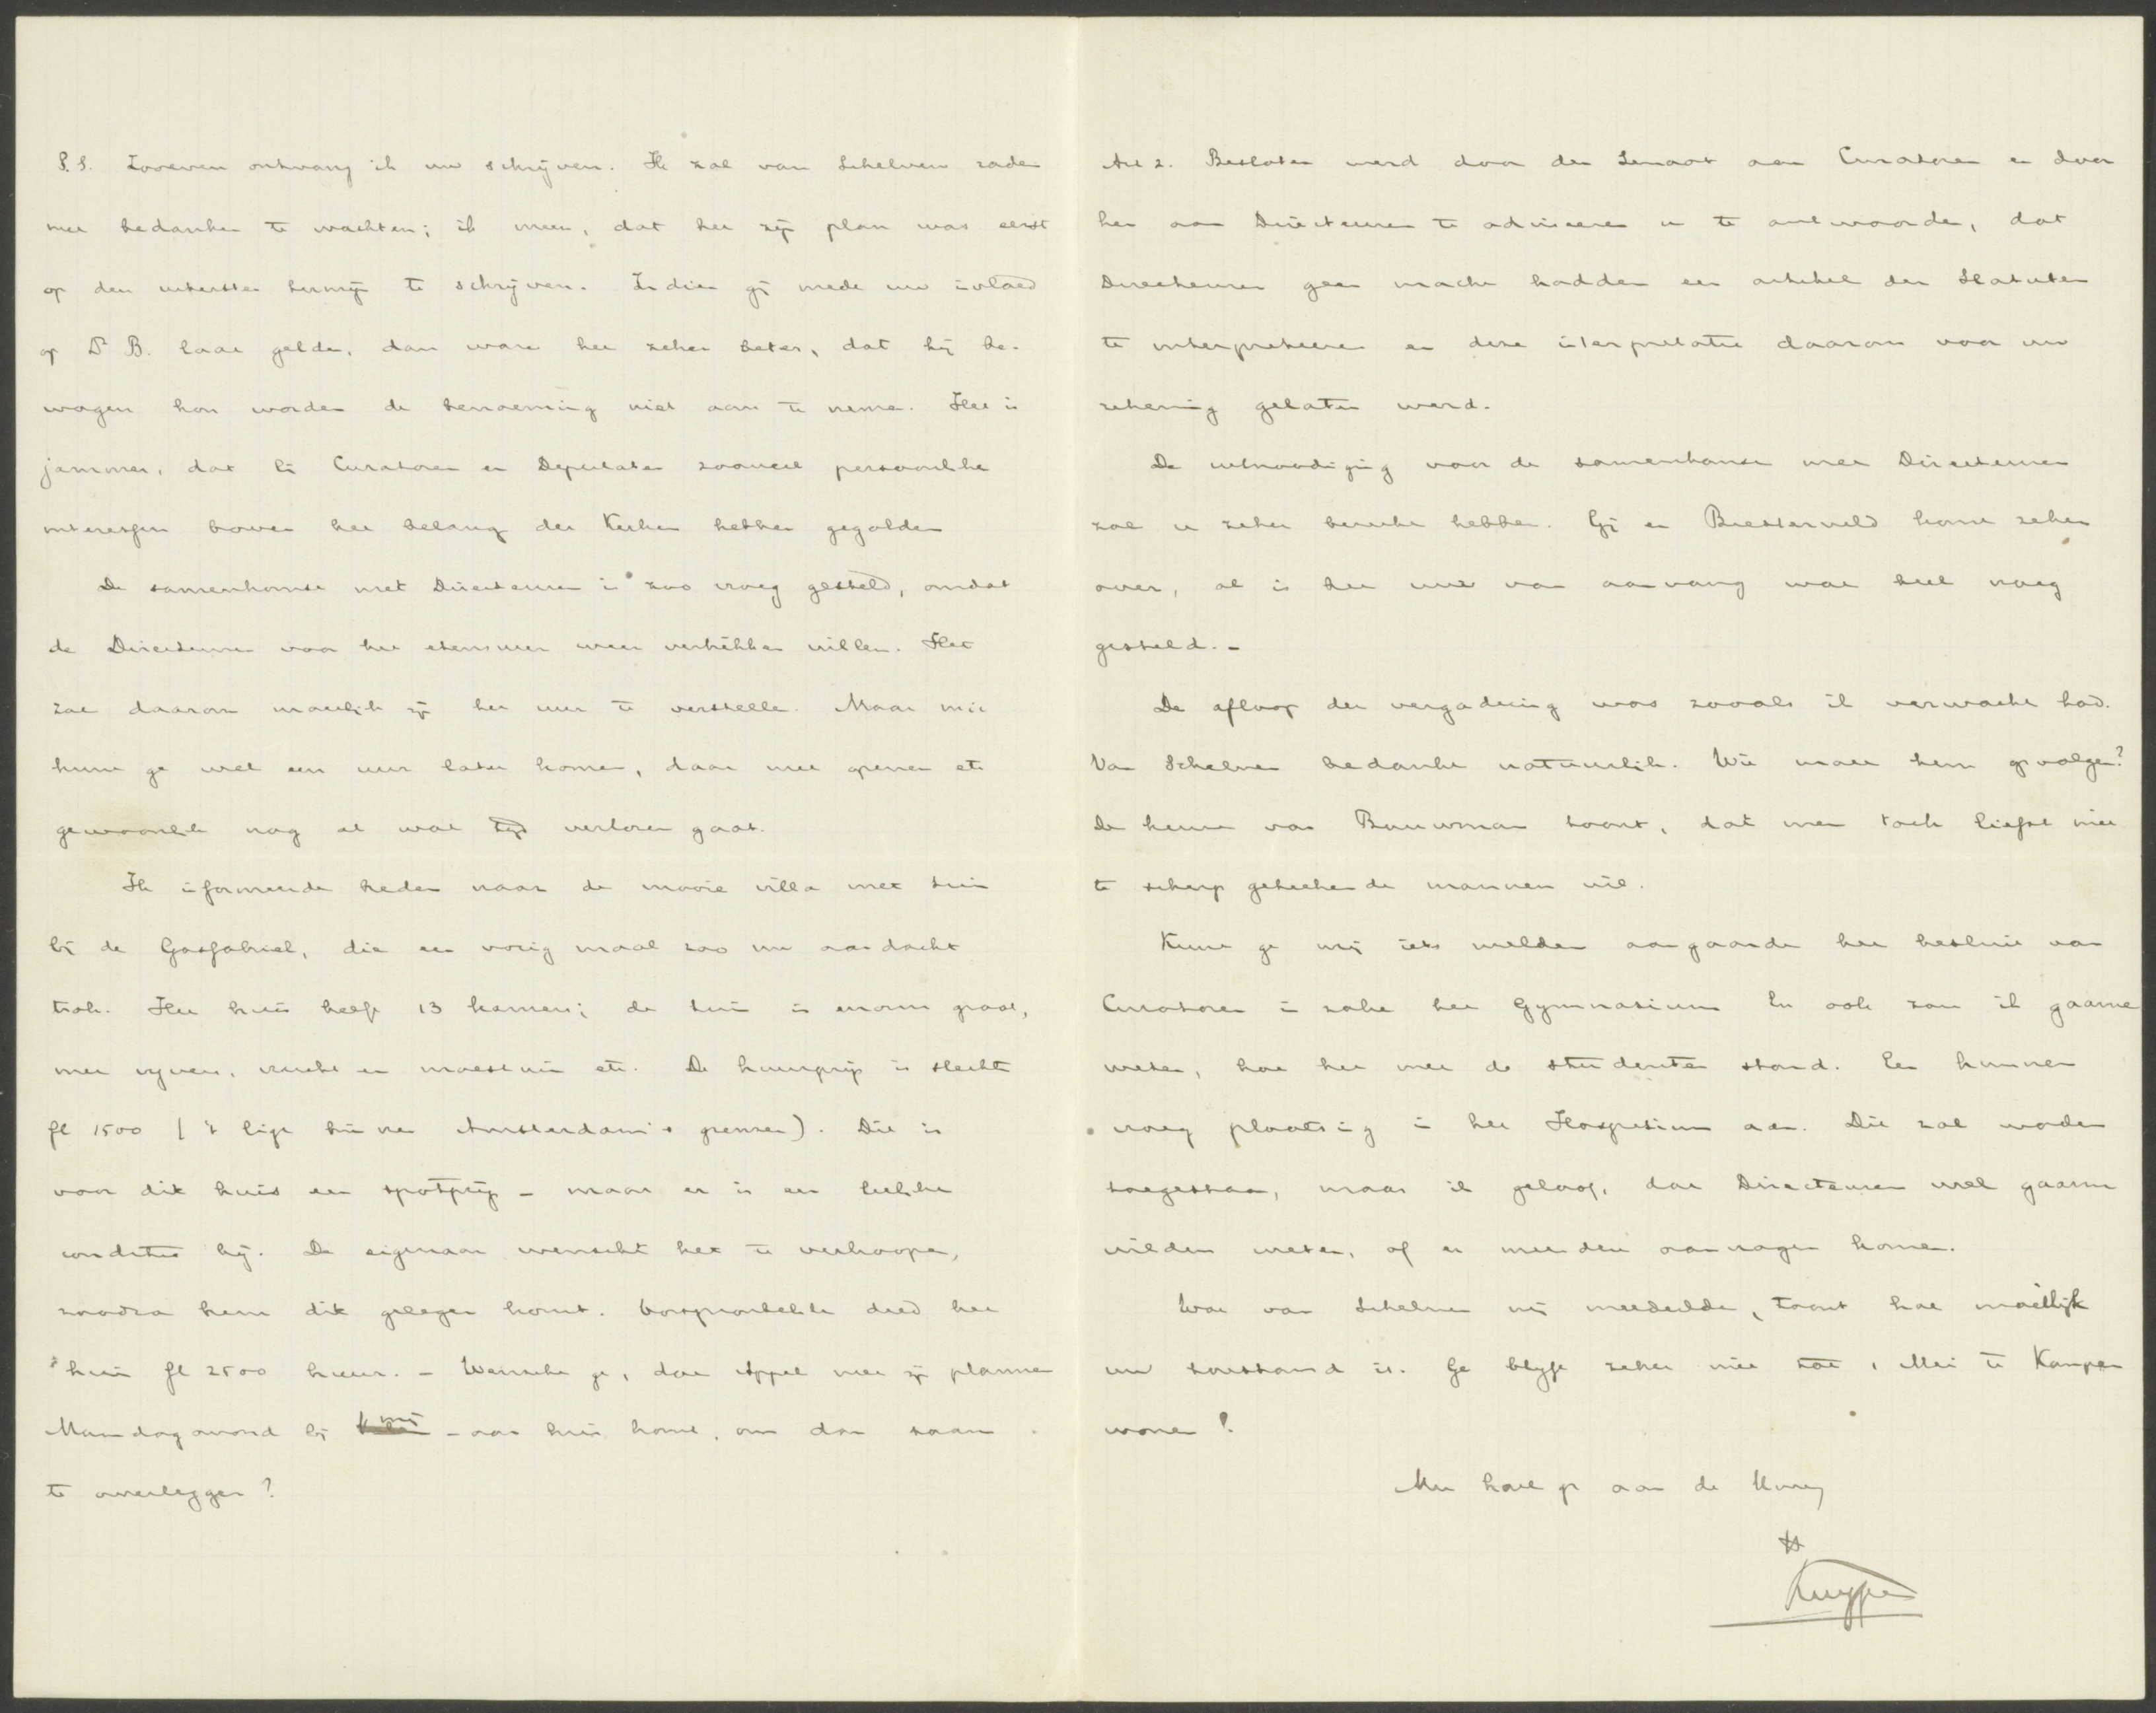 P.S. Zooeven ontvang ik uw schrijven. Ik zal van Schelven raden
met bedanken te wachten; ik meen, dat het zijn plan was eerst
op den uitersten termijn te schrijven. Indien gij mede uw invloed
op Ds B. laat gelden, dan ware het zeker beter, dat hij be-
wogen kon worden de benoeming niet aan te nemen. Het is
jammer, dat bij Curatoren en Deputaten zooveel persoonlijke
interessen boven het belang der Kerken hebben gegolden
De samenkomst met Directeuren is zoo vroeg gesteld, omdat
de Directeuren voor het etensuur weer vertrekken willen. Het
zal daarom moeilijk zijn het uur te verstellen. Maar mij
kunt ge wel een uur later komen, daar met openen etc
gewoonlijk nog al wat tijd verloren gaat.
Ik informeerde heden naar de mooie villa met tuin
bij de Gasfabriek, die een vorig maal zoo uw aandacht
trok. Het huis heeft 13 kamers; de tuin is enorm groot,
met vijvers, vrucht en moestuin etc. De huurprijs is slechts
fl 1500 ('t ligt binnen Amsterdam's grenzen). Dit is
voor dit huis een spotprijs - maar er is een leelijke
conditie bij. De eigenaar wenscht het te verkoopen,
zoodra hem dit gelegen komt. Oorspronkelijk deed het
huis fl 2500 huur. - Wenscht ge, dat Appel met zijn plannen
Maandagavond bij mij - aan huis komt, om dan saam
te overleggen?
Art 2. Besloten werd door den Senaat aan Curatoren en door
hen aan Directeuren te adviseeren u te antwoorden, dat
Directeuren geen macht hadden een artikel der Statuten
te interpreteeren en deze interpretatie daarom voor uw
rekening gelaten werd.
De uitnoodiging voor de samenkomst met Directeuren
zal u zeker bereikt hebben. Gij en Biesterveld komt zeker
over, al is het uur van aanvang wat heel vroeg
gesteld. -
De afloop der vergadering was zooals ik verwacht had.
Van Schelven bedankt natuurlijk. Wie moet hem opvolgen?
De keuze van Bouwman toont, dat men toch liefst niet
te scherp geteekende mannen wil.
Kunt ge mij iets melden aangaande het besluit van
Curatoren in zake het Gymnasium En ook zou ik gaarne
weten, hoe het met de studenten stond. Een hunner
vroeg plaatsing in het Hospitium aan. Dit zal worden
toegestaan, maar ik geloof, dat Directeuren wel gaarne
wilden weten, of er meerdere aanvragen komen.
Wat van Schelven mij meedeelde, toont hoe moeilijk
uw toestand is. Ge blijft zeker niet tot 1 Mei te Kampen
wonen!
Met hart gr aan de Uwen
tt
Kuyper